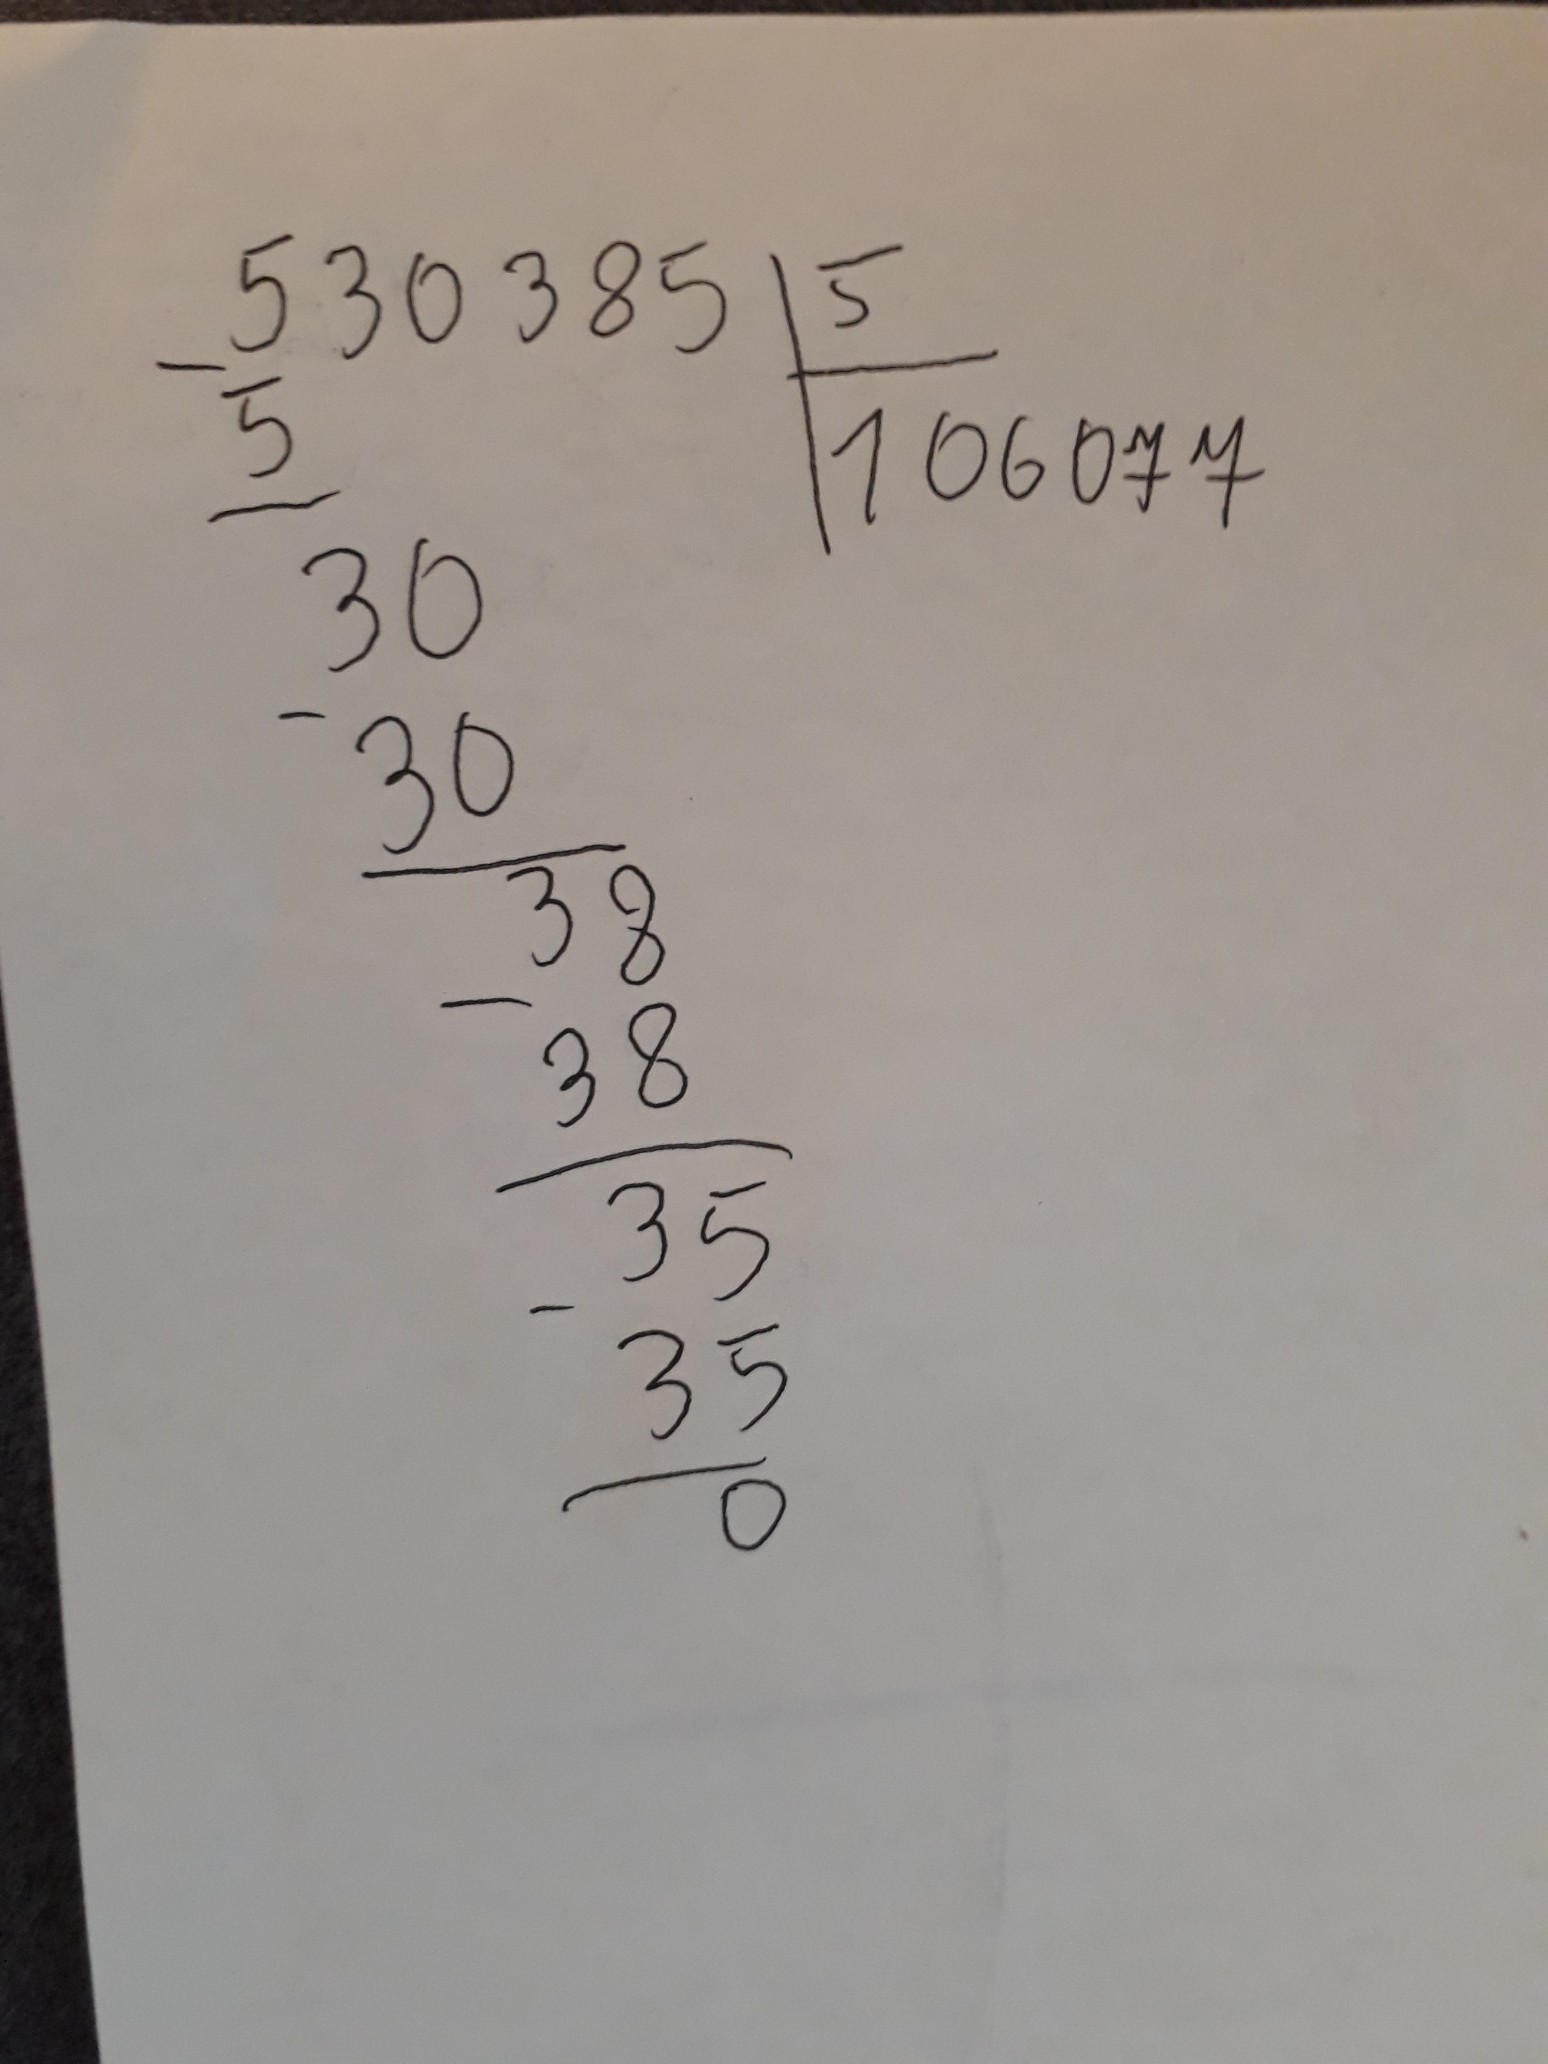 530385 5
- 5 106077
30
- 30
38
- 38
35
- 35
0